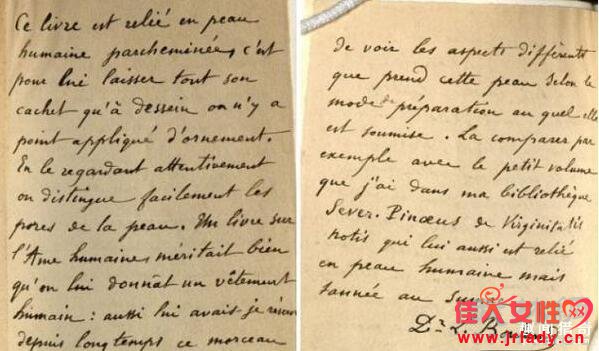 Ce livre est relié en peau
humaine parcheminée, c'est
pour lui laisser tout son
cachet qu'à dessein on n'y a
point appliqué d'ornement.
En le regardant attentivement
on distingue facilement les
pores de la peau. Un livre sur
l'Ame humaine méritait bien
qu'on lui donnât un vêtement
humain : aussi lui avais-je
depuis longtemps ce morceau
de voir les aspects différents
que prend cette peau selon le
mode de préparation au quel elle
est soumise. La comparer par
exemple avec le petit volume
que j'ai dans ma bibliothèque
Sever. Pinaeus de Virginitatis
notis qui lui aussi est relié
en peau humaine mais
tannée au
Dr L.
佳人女性
www.jrlady.cn